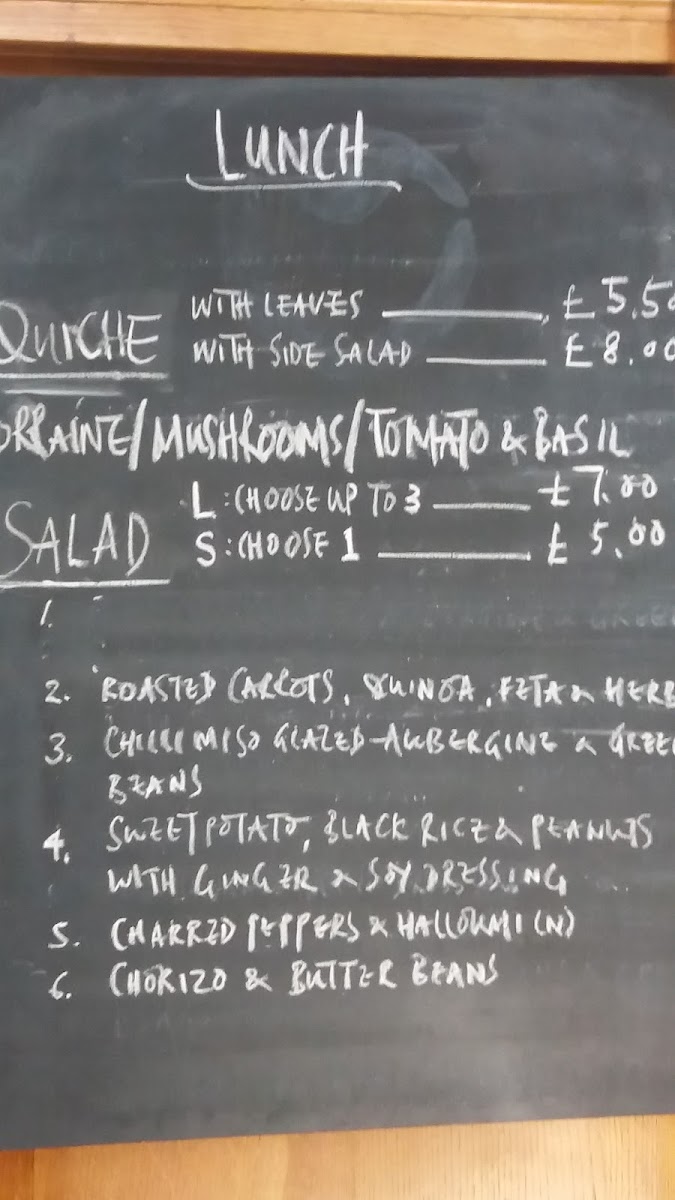 LUNCH
QUICHE WITH LEAVES £5.50
WITH SIDE SALAD £8.00
ORRAINE/MUSHROOMS/TOMATO & BASIL
SALAD L: CHOOSE UP TO 3 £7.00
S: CHOOSE 1 £5.00
1.
2. ROASTED CARROTS, QUINOA, FETA & HERB
3. CHILLI MISO GLAZED AUBERGINE & GREE
BEANS
4. SWEET POTATO, BLACK RICE & PEANUTS
WITH GINGER & SOY DRESSING
5. CHARRED PEPPERS & HALLOUMI (N)
6. CHORIZO & BUTTER BEANS